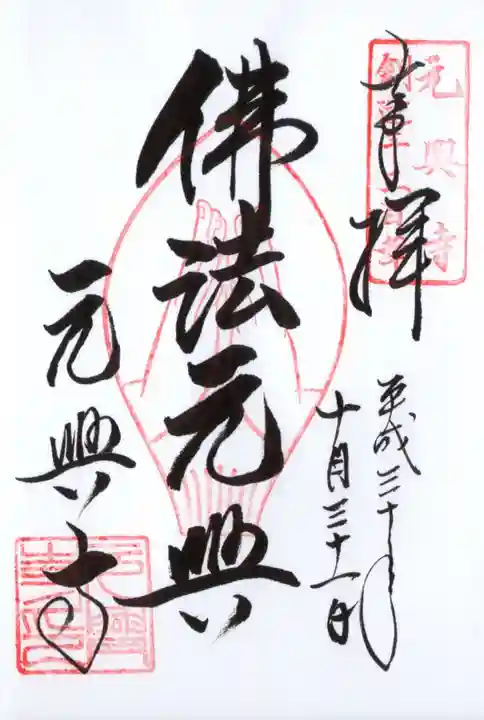 奉拝
平成三十年
十月三十一日
佛法元興
元興寺
元興寺